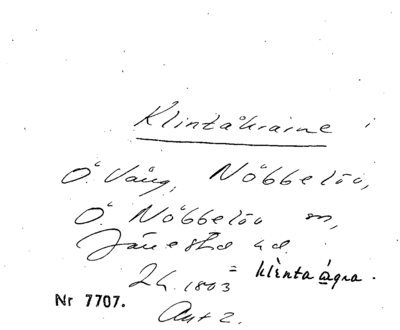 Klintåkrarne i
Ö. Vång, Nöbbelöv,
Ö. Nöbbelöv sn,
Järrestad hd
Lh. 1803 = klìnta ágra.
Nr 7707.
Akt 2.